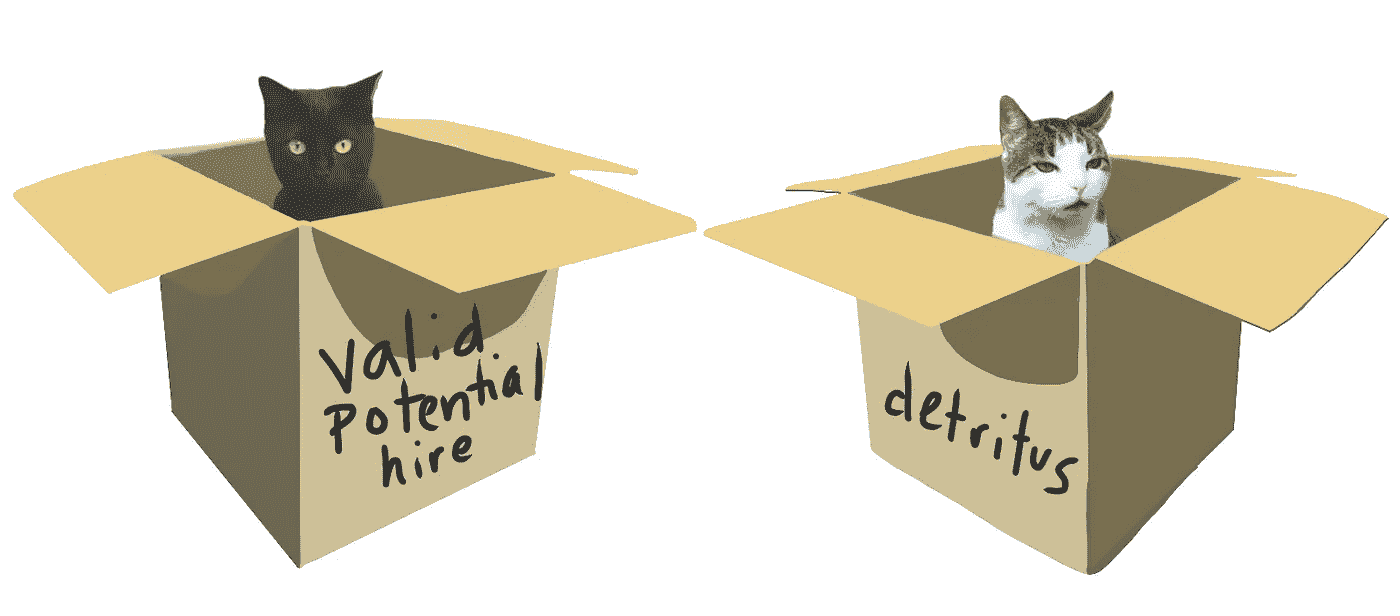 valid
Potential
hire
detritus